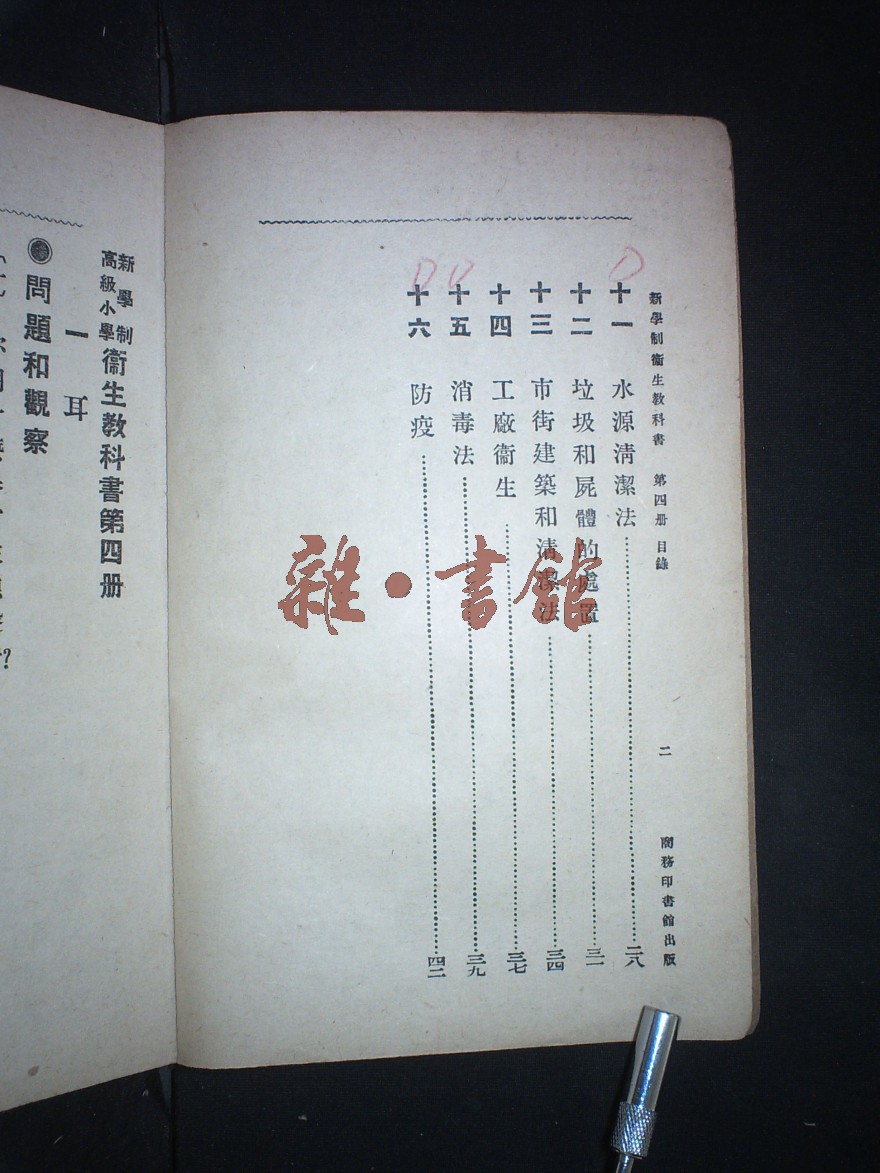 新學制衞生教科書 第四册 目錄 二 商務印書館出版
十一 水源清潔法 二八
十二 垃圾和屍體的處置 三一
十三 市街建築和清潔法 三四
十四 工廠衞生 三七
十五 消毒法 三九
十六 防疫 四二
雜·書館
新學制高級小學衞生教科書第四册
一 耳
問題和觀察